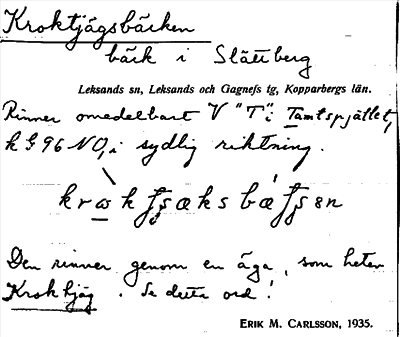 Kroktjägsbäcken
bäck i Slättberg
Leksands sn, Leksands och Gagnefs tg, Kopparbergs län.
Rinner omedelbart V "T" i Tamtspjället,
k G 96 NO, i sydlig riktning.
Den rinner genom en äga, som heter
Kroktjäg. Se detta ord!
ERIK M. CARLSSON, 1935.